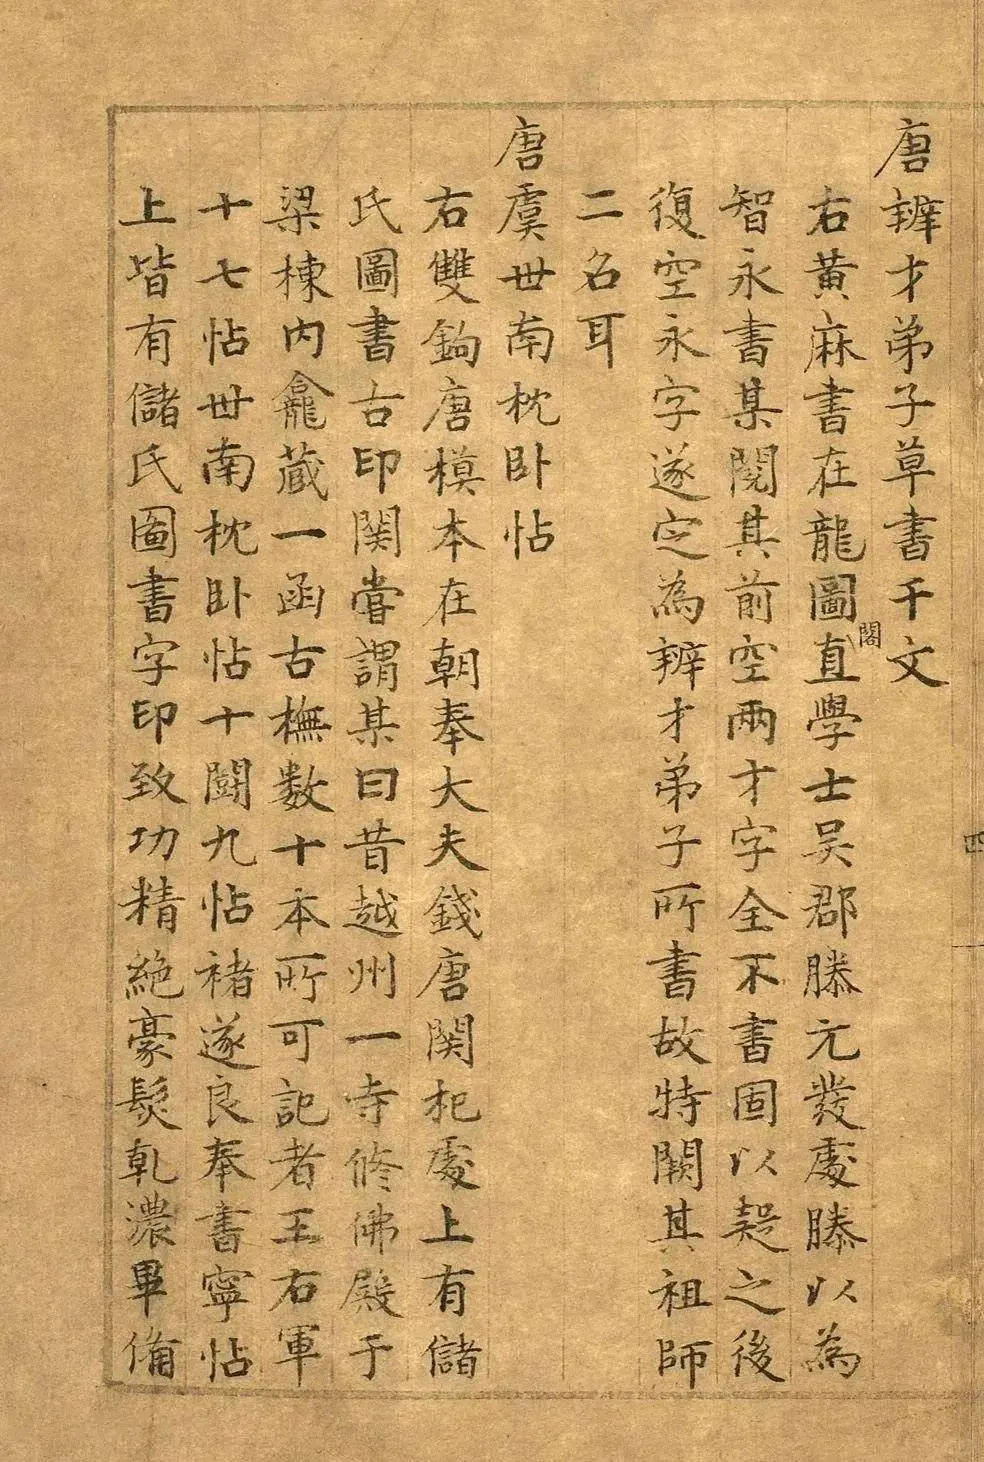 唐辨才弟子草書千文
右黄麻書在龍圖閣直學士吴郡滕元發處滕以為
智永書某閱其前空兩才字全不書固以疑之後
復空永字遂定為辨才弟子所書故特闕其祖師
二名耳
唐虞世南枕卧帖
右雙鉤唐模本在朝奉大夫錢唐関杞處上有儲
氏圖書古印関嘗謂某曰昔越州一寺修佛殿于
梁棟内龕藏一函古橅数十本所可記者王右軍
十七帖世南枕卧帖十闘九帖褚遂良奉書寧帖
上皆有儲氏圖書字印致功精絶豪髮乹濃畢備
四